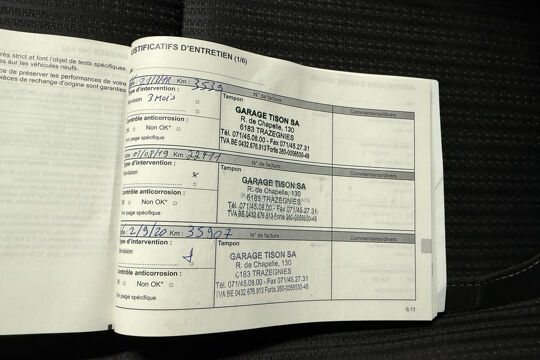 très strict et font l'objet de tests spécifiques,
es sur les véhicules neufs.
ce de préserver les performances de votre
pièces de rechange d'origine sont garanties
JUSTIFICATIFS D'ENTRETIEN (1/6)
Km : 3539
N° de facture
Commentaires/divers
Type d'intervention :
Révision
3 MOIS
Tampon
GARAGE TISON SA
R. de Chapelle, 130
6183 TRAZEGNIES
Tél. 071/45.08.00 - Fax 071/45.27.31
TVA BE 0432.676.913 Fortis 260-0056530-48
Contrôle anticorrosion :
OK
Non OK*
Voir page spécifique
01/08/19 Km :
N° de facture
Commentaires/divers
Type d'intervention :
Révision
x
Tampon
GARAGE TISON SA
R. de Chapelle, 130
6183 TRAZEGNIES
Tél. 071/45.08.00 - Fax 071/45.27.31
TVA BE 0432.676.913 Fortis 260-0056530-48
Contrôle anticorrosion :
OK
Non OK*
Voir page spécifique
2/9/20 Km : 35907
N° de facture
Commentaires/divers
Type d'intervention :
Révision
Tampon
GARAGE TISON SA
R. de Chapelle, 130
6183 TRAZEGNIES
Tél. 071/45.08.00 - Fax 071/45.27.31
TVA BE 0432.676.913 Fortis 260-0056530-48
Contrôle anticorrosion :
Non OK*
Voir page spécifique
6.11